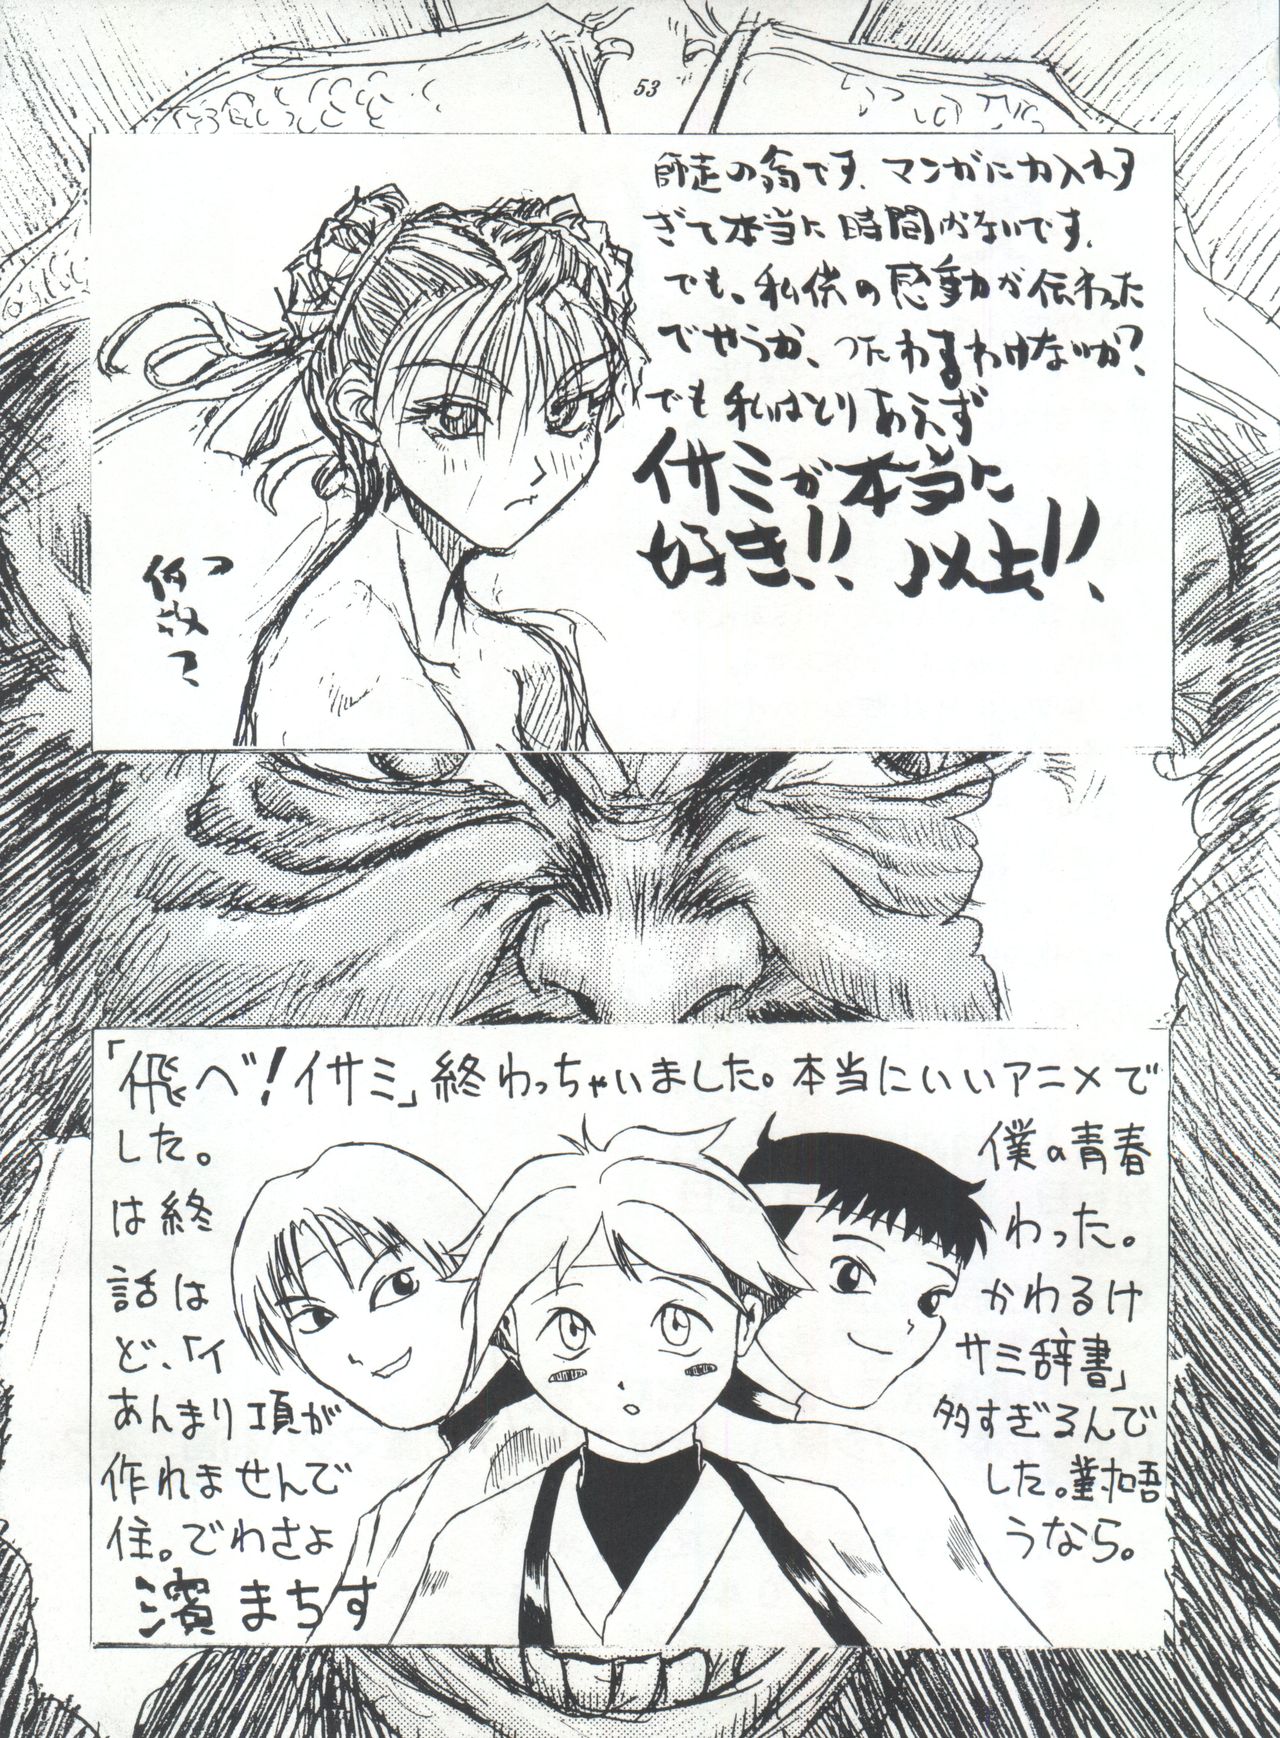 53
師走の翁です、マンガに力入れす
ぎて本当に時間がないです、
でも、私供の感動が伝わった
でせうか、つたわるわけないか?、
でも私はとりあえず
イサミが本当に
好き!! 以上!!、
何故
「飛べ!イサミ」終わっちゃいました。本当にいいアニメで
した。 僕の青春
は終 わった。
話は かわるけ
ど、「イ サミ辞書」
あんまり項が 多すぎるんで
作れませんで した。
住。でわさよ うなら。
濱まちす